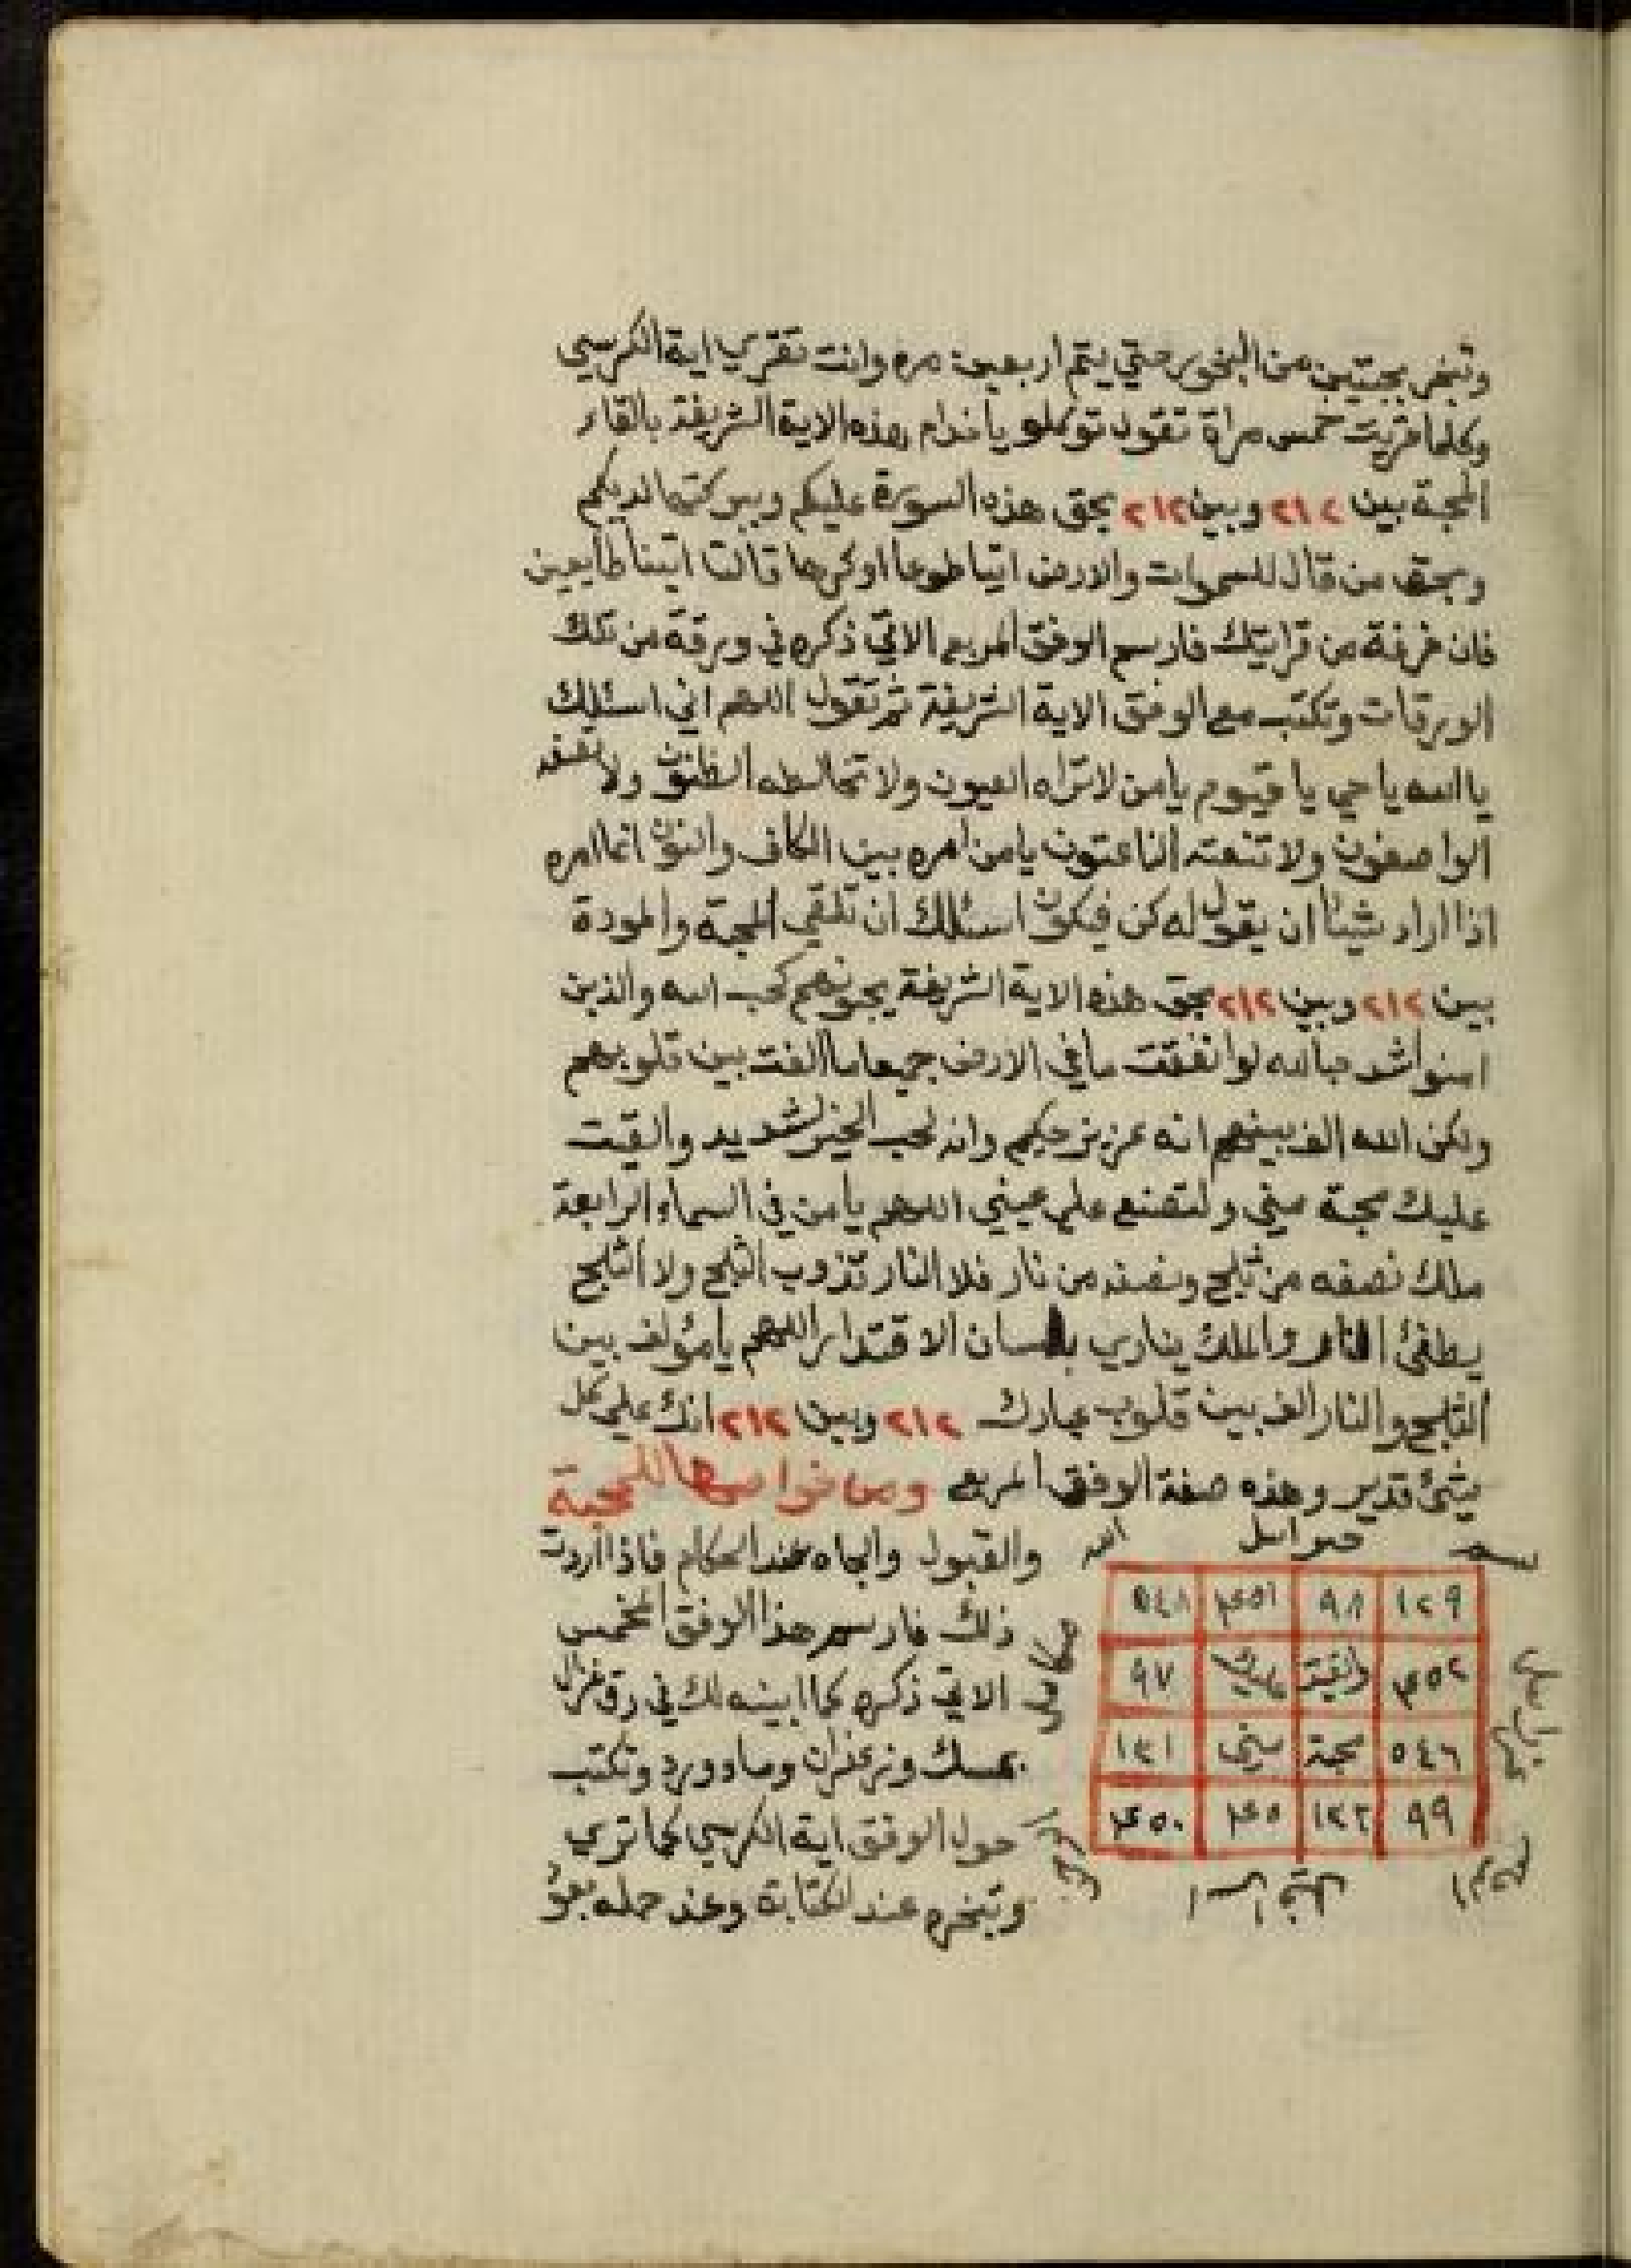 وتبخر بحبتين من البخور حتي يتم اربعين مره وانت تقري اية الكرسي
وكلما قريت خمس مراة تقول توكلو يا خدام هذه الاية الشريفة بالقاء
المحبة بين ٢١٢ وبين ٢١٢ بحق هذه السورة عليكم وببركتها لديكم
وبحق من قال للسموات والارض اتيا طوعا او كرها قالتا اتينا طايعين
فان فرغة من قرايتك فارسم الوفق المربع الاتي ذكره في ورقة من تلك
الورقات وتكتب مع الوفق الاية الشريفة ثم تقول اللهم اني اسئلك
يا الله يا حي يا قيوم يا من لا تراه العيون ولا تخالطه الظنون ولا تصفه
الواصفون ولا تنعته الناعتون يا من امره بين الكاف والنون انما امره
اذا اراد شيئا ان يقول له كن فيكون اسئلك ان تلقي المحبة والمودة
بين ٢١٢ وبين ٢١٢ بحق هذه الاية الشريفة يحبونهم كحب الله والذين
امنوا اشد حبا لله لو انفقت ما في الارض جميعا ما الفت بين قلوبهم
ولكن الله الف بينهم انه عزيز حكيم وانه لحب الخير لشديد والقيت
عليك محبة مني ولتصنع علي عيني اللهم يا من في السماء الرابعة
ملك نصفه من ثلج ونصفه من نار فلا النار تذوب الثلج ولا الثلج
يطفئ النار والملك ينادي بلسان الاقتدار اللهم يا مؤلف بين
الثلج والنار الف بين قلوب عبادك ٢١٢ وبين ٢١٢ انك علي كل
شئ قدير وهذه صفة الوفق المربع ومن خواصها للمحبة
والقبول والجاه عند الحكام فاذا اردت
ذلك فارسم هذا الوفق المخمس
الاتي ذكره كما ابينه لك في رق غزال
بمسك وزعفران وماء ورد وتكتب
حول الوفق اية الكرسي كما تري
وتبخره عند الكتابة وعند حمله بعود
بسم الله
١٢٩ ٩٨ ٤٥١ ٥٤٨
٤٥٢ والقيت عليك ٩٧
٥٤٦ محبة مني ١٣١
٩٩ ١٣٢ ٤٥ ٤٥٠